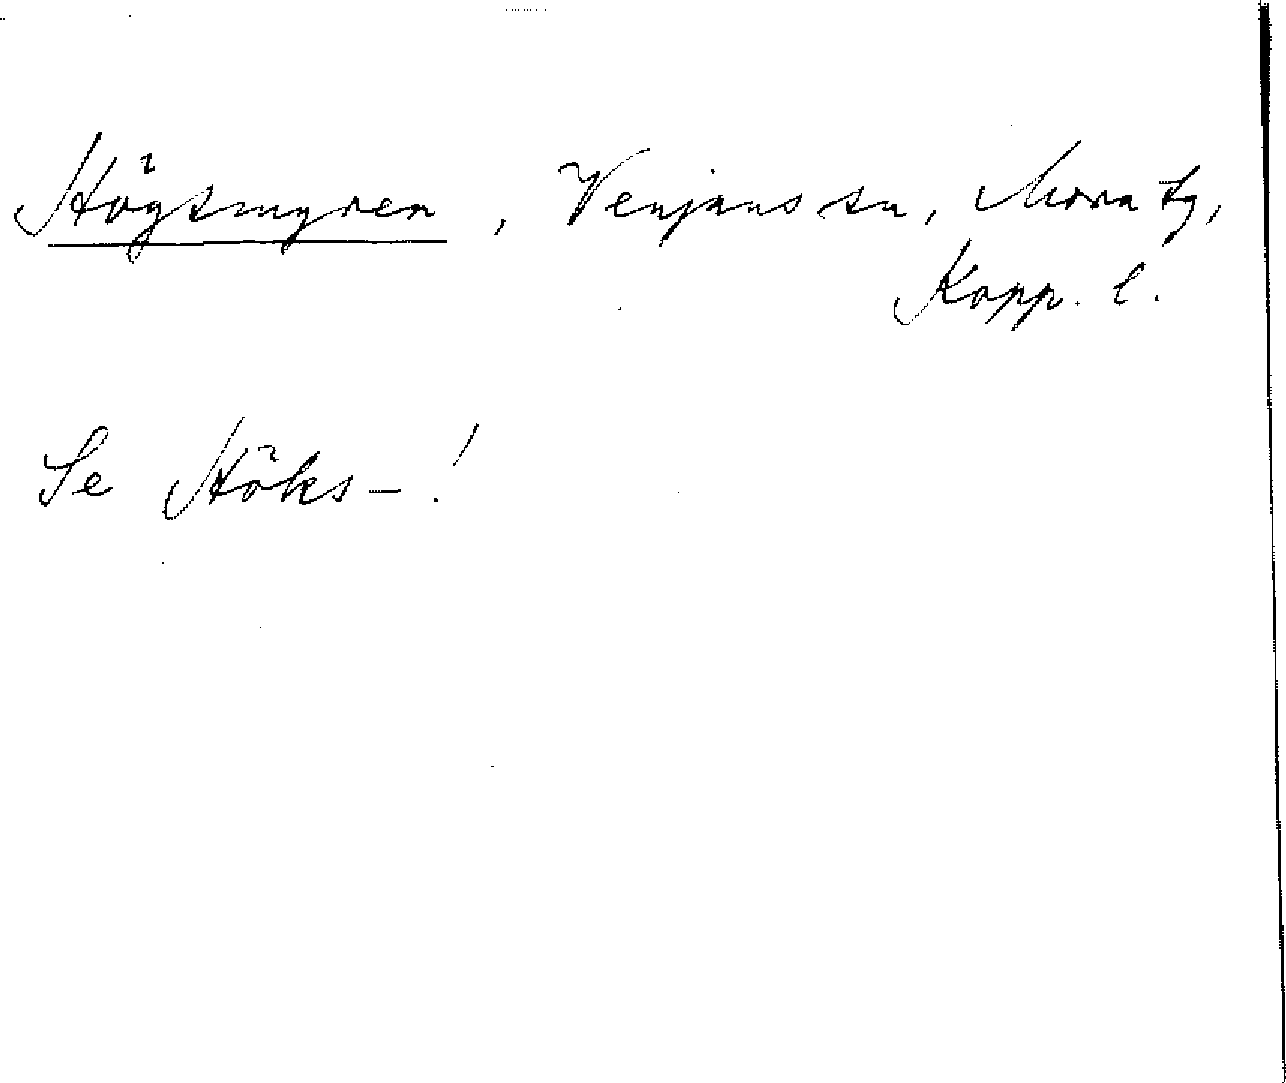 Högsmyren, Venjans sn, Mora tg,
Kopp. l.
Se Höks-!